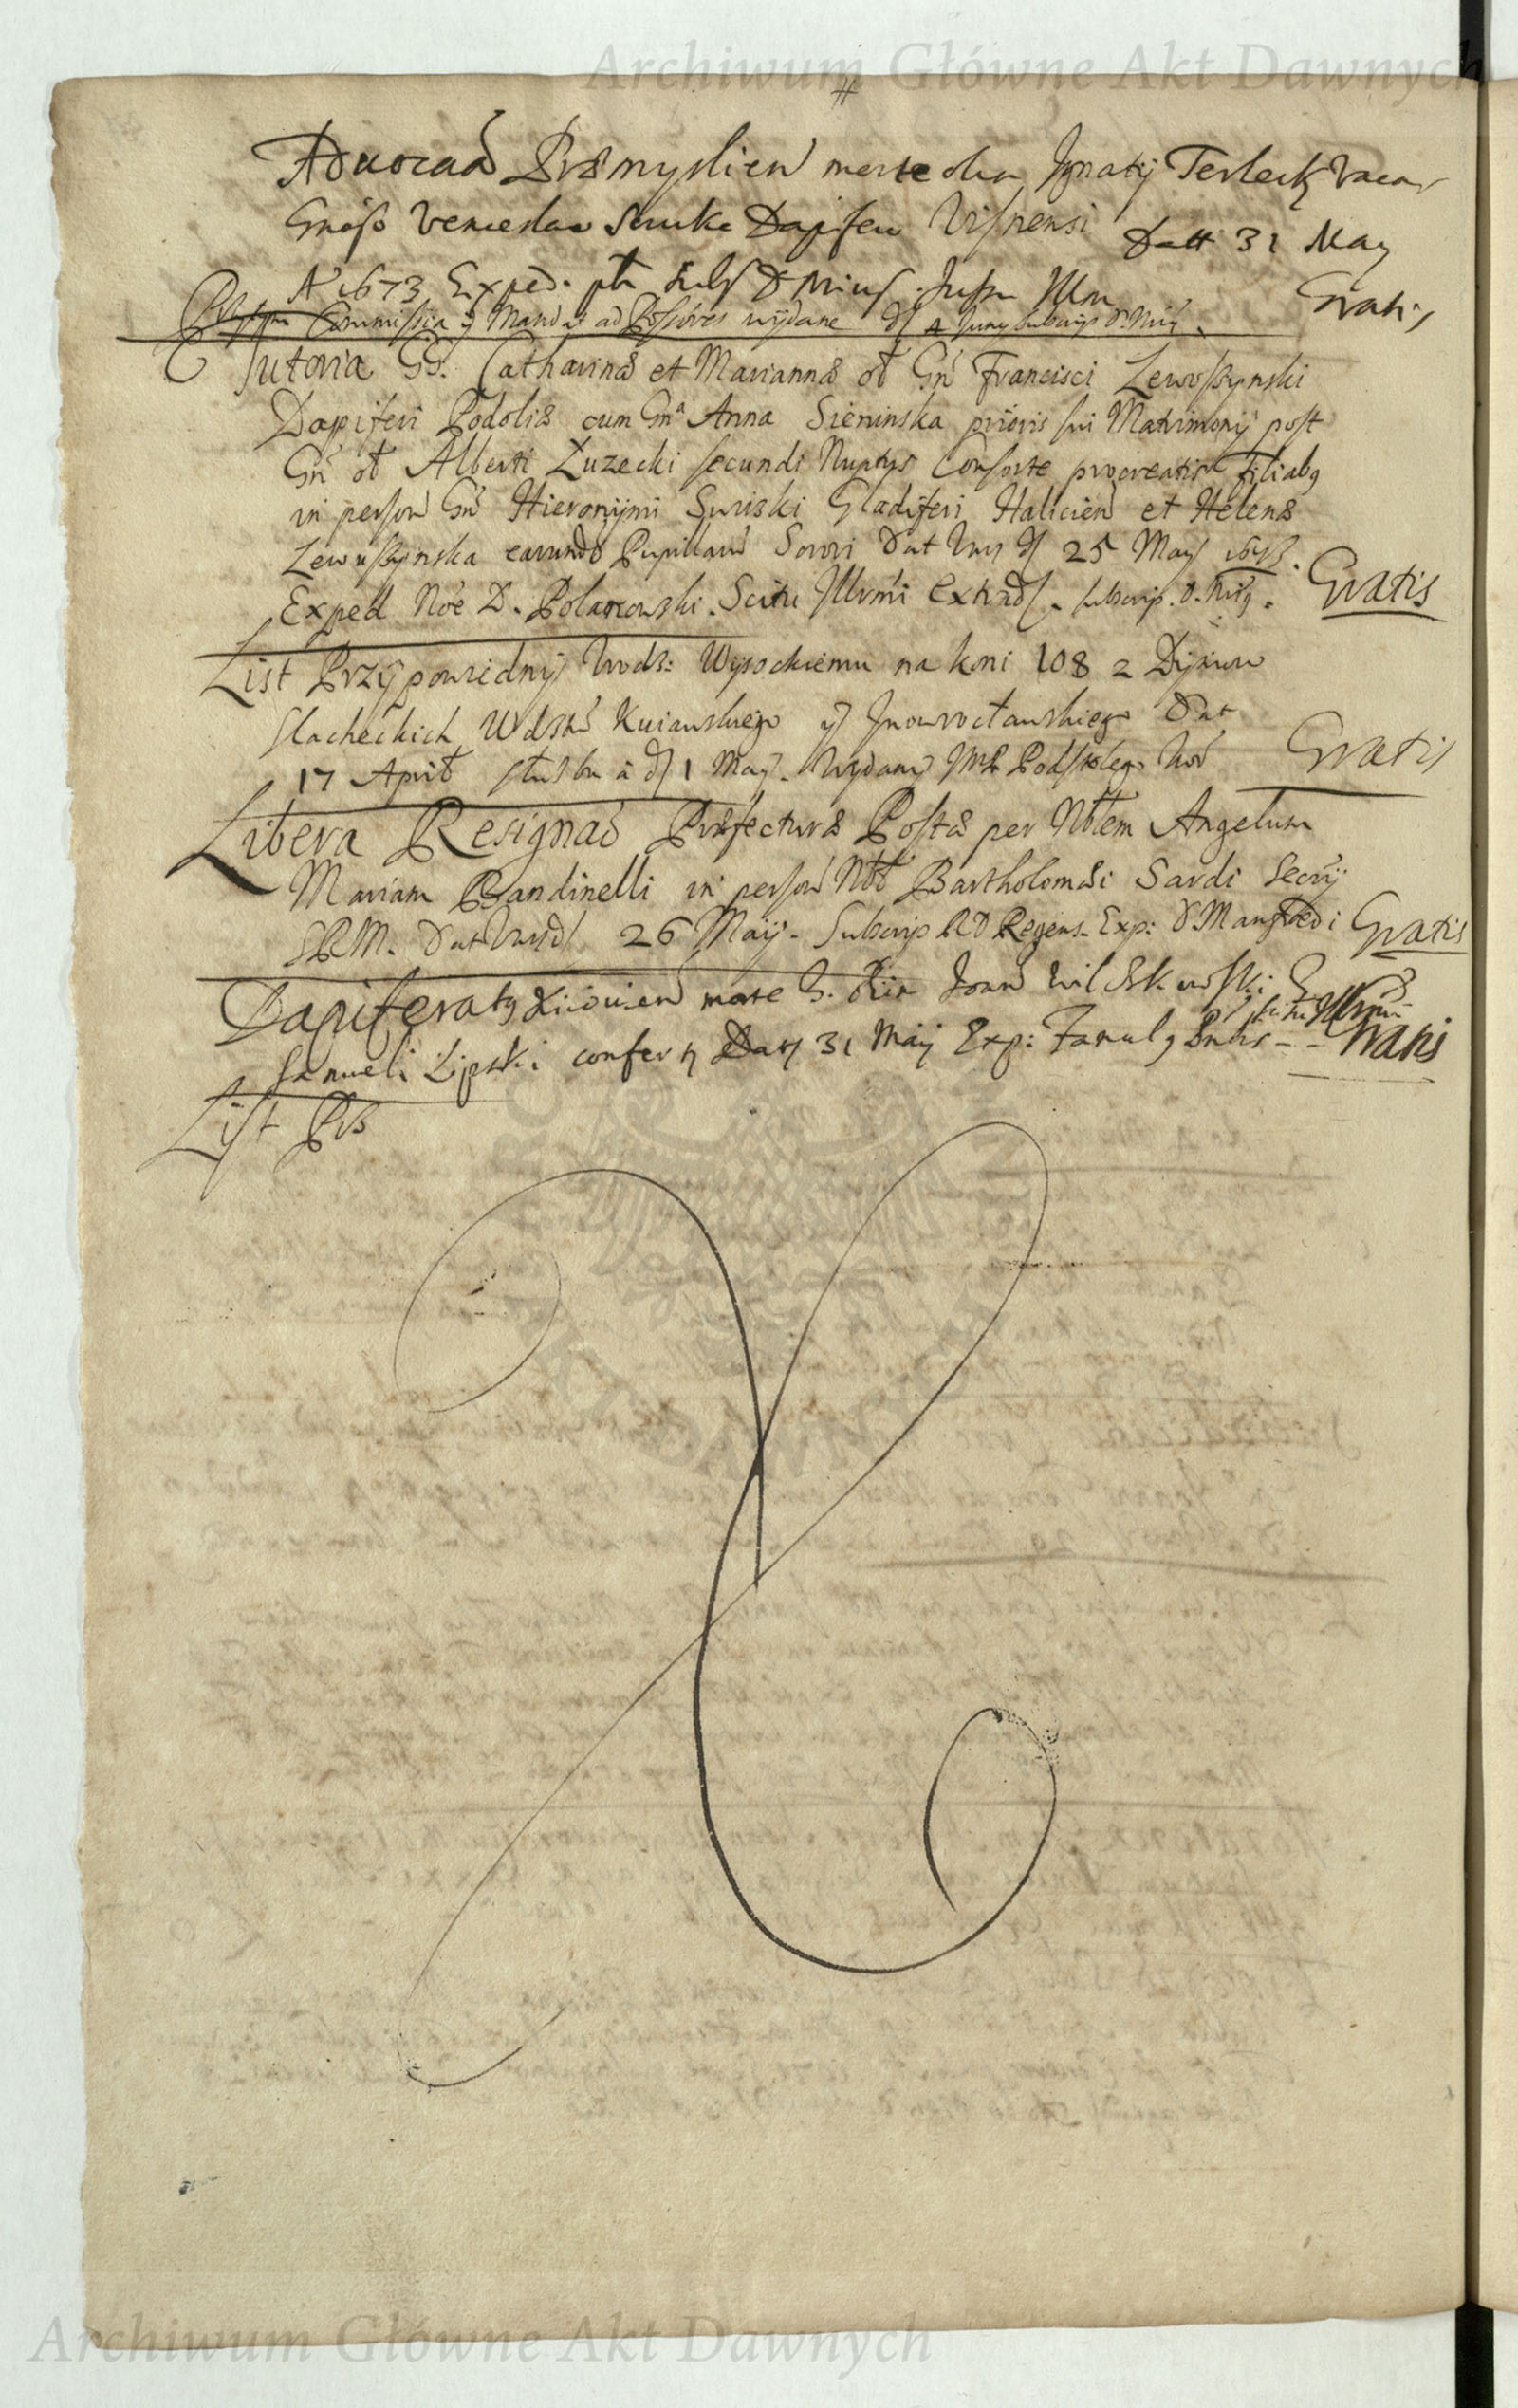 Archiwum Główne Akt Dawnych
#
Advocaõ Præmyslien morte olim Ignatij Terlecky vacan
Gnoso Venceslao Dapifero Visnensi Datt 31 May
A 1673 Exped. Jussu Illm Gratis
Commissia y Mandat ad Possores wydane D 4 Juny subscrip D.
Tutoria GG. Catharinæ et Mariannæ ol Gn Francisci Lewoszynski
Dapiferi Podoliæ cum Gna Anna Sieninska prioris sui Matrimonij post
Gn ol Alberti Zuzecki secundi Nuptys Consorte procreatis filiabq
in person Gn Hieronymi Suriski Gladiferi Halicien et Helenæ
Lewoszynska earundẽ Pupillarũ Sorori Dat Vars D 25 May 1673.
Exped Noe D. Polanowski. Scitu Illrmi Extrad. subscrip. D. Gratis
List Przypowiedny Urodz: Wysockiemu na koni 108 z Dymow
slacheckich Wdztw Kuiawskiego y Inowrocławskiego Dat
17 April służba a d 1 May. Wydany JMP Podstolego Gratis
Libera Resignaõ Præfecturæ Postæ per Nblem Angelum
Mariam Bandinelli in person Nbl Bartholomæi Sardi Secrij
SRM. Dat 26 Maij. Subscrip RD Regens. Exp: D. Manfredi Gratis
Dapiferatq Kiiovien morte G. olim Joan Wilczkowski G
Samueli Lipski confer Dat 31 Maij Exp: Gratis
List Prz
Archiwum Główne Akt Dawnych